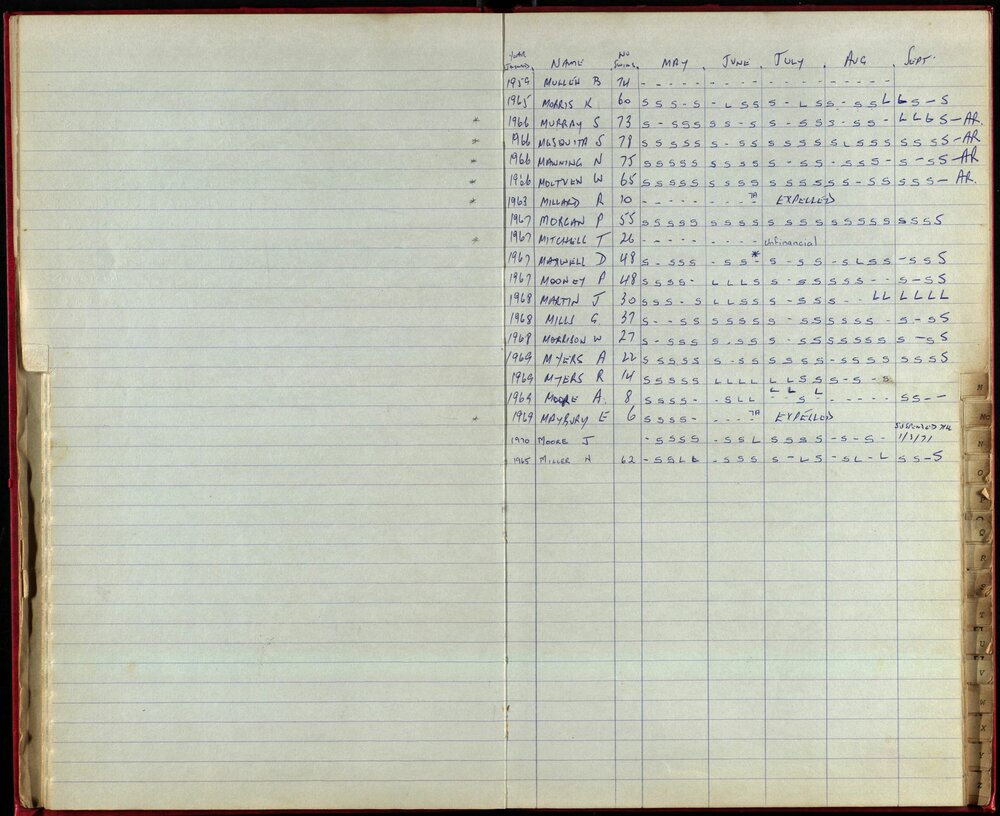 YEAR JOINED NAME NO SWIMS MAY JUNE JULY AUG SEPT.
1959 MULLEN B 74 - - - - - - - - - - - - - - - - - - -
1965 MORRIS K 60 S S S - S - L S S S - L S S - S S L L S - S
* 1966 MURRAY S 73 S - S S S S S - S S - S S S - S S - L L L S S - AR.
* 1966 MESQUITA S 78 S S S S S S - S S S S S S S S L S S S S S S S - AR
* 1966 MANNING N 75 S S S S S S S S S S - S S - S S S - S - S S - AR
* 1966 MOLTVEN W 65 S S S S S S S S S S S S S S S - S S S S S - AR.
* 1963 MILLARD R 10 - - - - - - - - - 7A EXPELLED
1967 MORGAN P 55 S S S S S S S S S S S S S S S S S S S S S S S
* 1967 MITCHELL T 26 - - - - - - - - - unfinancial
1967 MAXWELL D 48 S - S S S - S S * - S - S S - S L S S - S S S
1967 MOONEY P 48 S S S S - L L L S S - S S S S S - - S - S S
1968 MARTIN J 30 S S S - S L L S S S - S S S - - L L L L L L
1968 MILLS G. 37 S - - S S S S S S S - S S S S S S - S - S S
1968 MORRISON W 27 S - S S S - S S S S - S S S S S S S - S S
1969 MYERS A 22 S S S S S S - S S S S S S - S S S S S S S S
1969 MYERS R 14 S S S S S L L L L L L S S S - S - S
1969 MOORE A. 8 S S S S - - S L L L L S L - - - - - S S - -
* 1969 MAYBURY E 6 S S S S - - - - - 7A EXPELLED
1970 MOORE J - S S S S - S S L S S S S - S - S - SUSPENDED 1/3/71
1965 MILLER N 62 - S S L L - S S S S - L S - S L - L S S - S
M
Mc
N
O
P
Q
R
S
T
U
V
W
X
Y
Z